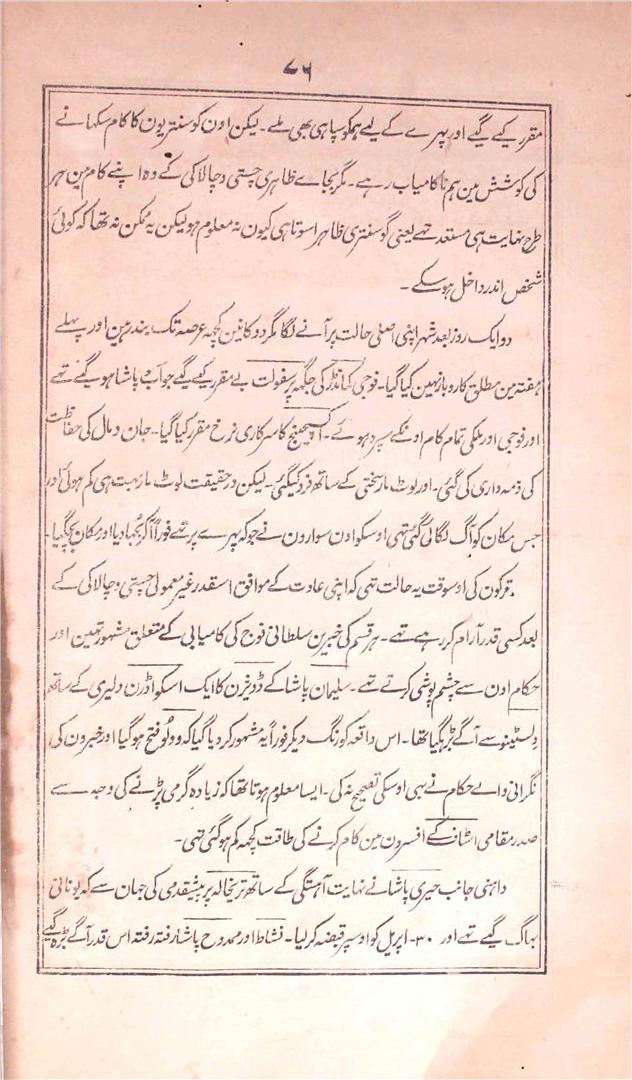 ۷۶
مقرر کیے گیے اور پہرے کے لیے ہمکو سپاہی بھی ملے۔ لیکن اون کو سنتریون کا کام سکھانے
کی کوشش مین ہم ناکامیاب رہے۔ مگر بجاے ظاہری چستی و چالاکی کے وہ اپنے کام مین ہر
طرح نہایت ہی مستعد تہے یعنی گو سنتری ظاہر اسوتا ہی کیون نہ معلوم ہو لیکن یہ ممکن نہ تھا کہ کوئی
شخص اندر داخل ہو سکے۔
دو ایک روز بعد شہر اپنی اصلی حالت پر آنے لگا مگر دوکانین کچہہ عرصہ تک بند رہین اور پہلے
ہفتہ مین مطلق کاروبار نہین کیا گیا۔ فوجی کمانڈر کی جگہہ پر سفولت بے مقرر کیے گیے جو اب پاشا ہو گیے تہے
اور فوجی اور ملکی تمام کام اونکے سپرد ہوے۔ اکسچینج کا سرکاری نرخ مقرر کیا گیا۔ جان و مال کی حفاظت
کی ذمہ داری کی گئی۔ اور لوٹ مار سختی کے ساتھ فرد کیگئی۔ لیکن در حقیقت لوٹ مار بہت ہی کم ہوئی اور
جس مکان کو آگ لگائی گئی تہی اوسکو اون سوارون نے جو کہ پہرے پر تہے فوراً آکر بجہا دیا اور مکان بچگیا۔
ترکون کی اوسوقت یہ حالت تہی کہ اپنی عادت کے موافق اسقدر غیر معمولی چستی و چالاکی کے
بعد کسی قدر آرام کر رہے تہے۔ ہر قسم کی خبرین سلطانی فوج کی کامیابی کے متعلق مشہور تہین اور
حکام اون سے چشم پوشی کرتے تہے۔ سلیمان پاشا کے ڈویژن کا ایک اسکواڈرن دلیری کے ساتھ
ولسٹینو سے آگے بڑہگیا تھا۔ اس واقعہ کو رنگ دیکر فوراً یہ مشہور کر دیا گیا کہ وولو فتح ہو گیا اور خبرون کی
نگرانی والے حکام نے بہی اوسکی تصحیح نہ کی۔ ایسا معلوم ہوتا تھا کہ زیادہ گرمی پڑنے کی وجہ سے
صدر مقامی اسٹاف کے افسرون مین کام کرنے کی طاقت کچہہ کم ہو گئی تہی۔
داہنی جانب حیری پاشا نے نہایت آہستگی کے ساتھ تریخالہ پر پیشقدمی کی جہان سے کہ یونانی
بہاگ گیے تہے اور ۳۰۔ اپریل کو اوسپر قبضہ کر لیا۔ نشاط اور ممدوح پاشا رفتہ رفتہ اس قدر آگے بڑہ گیے